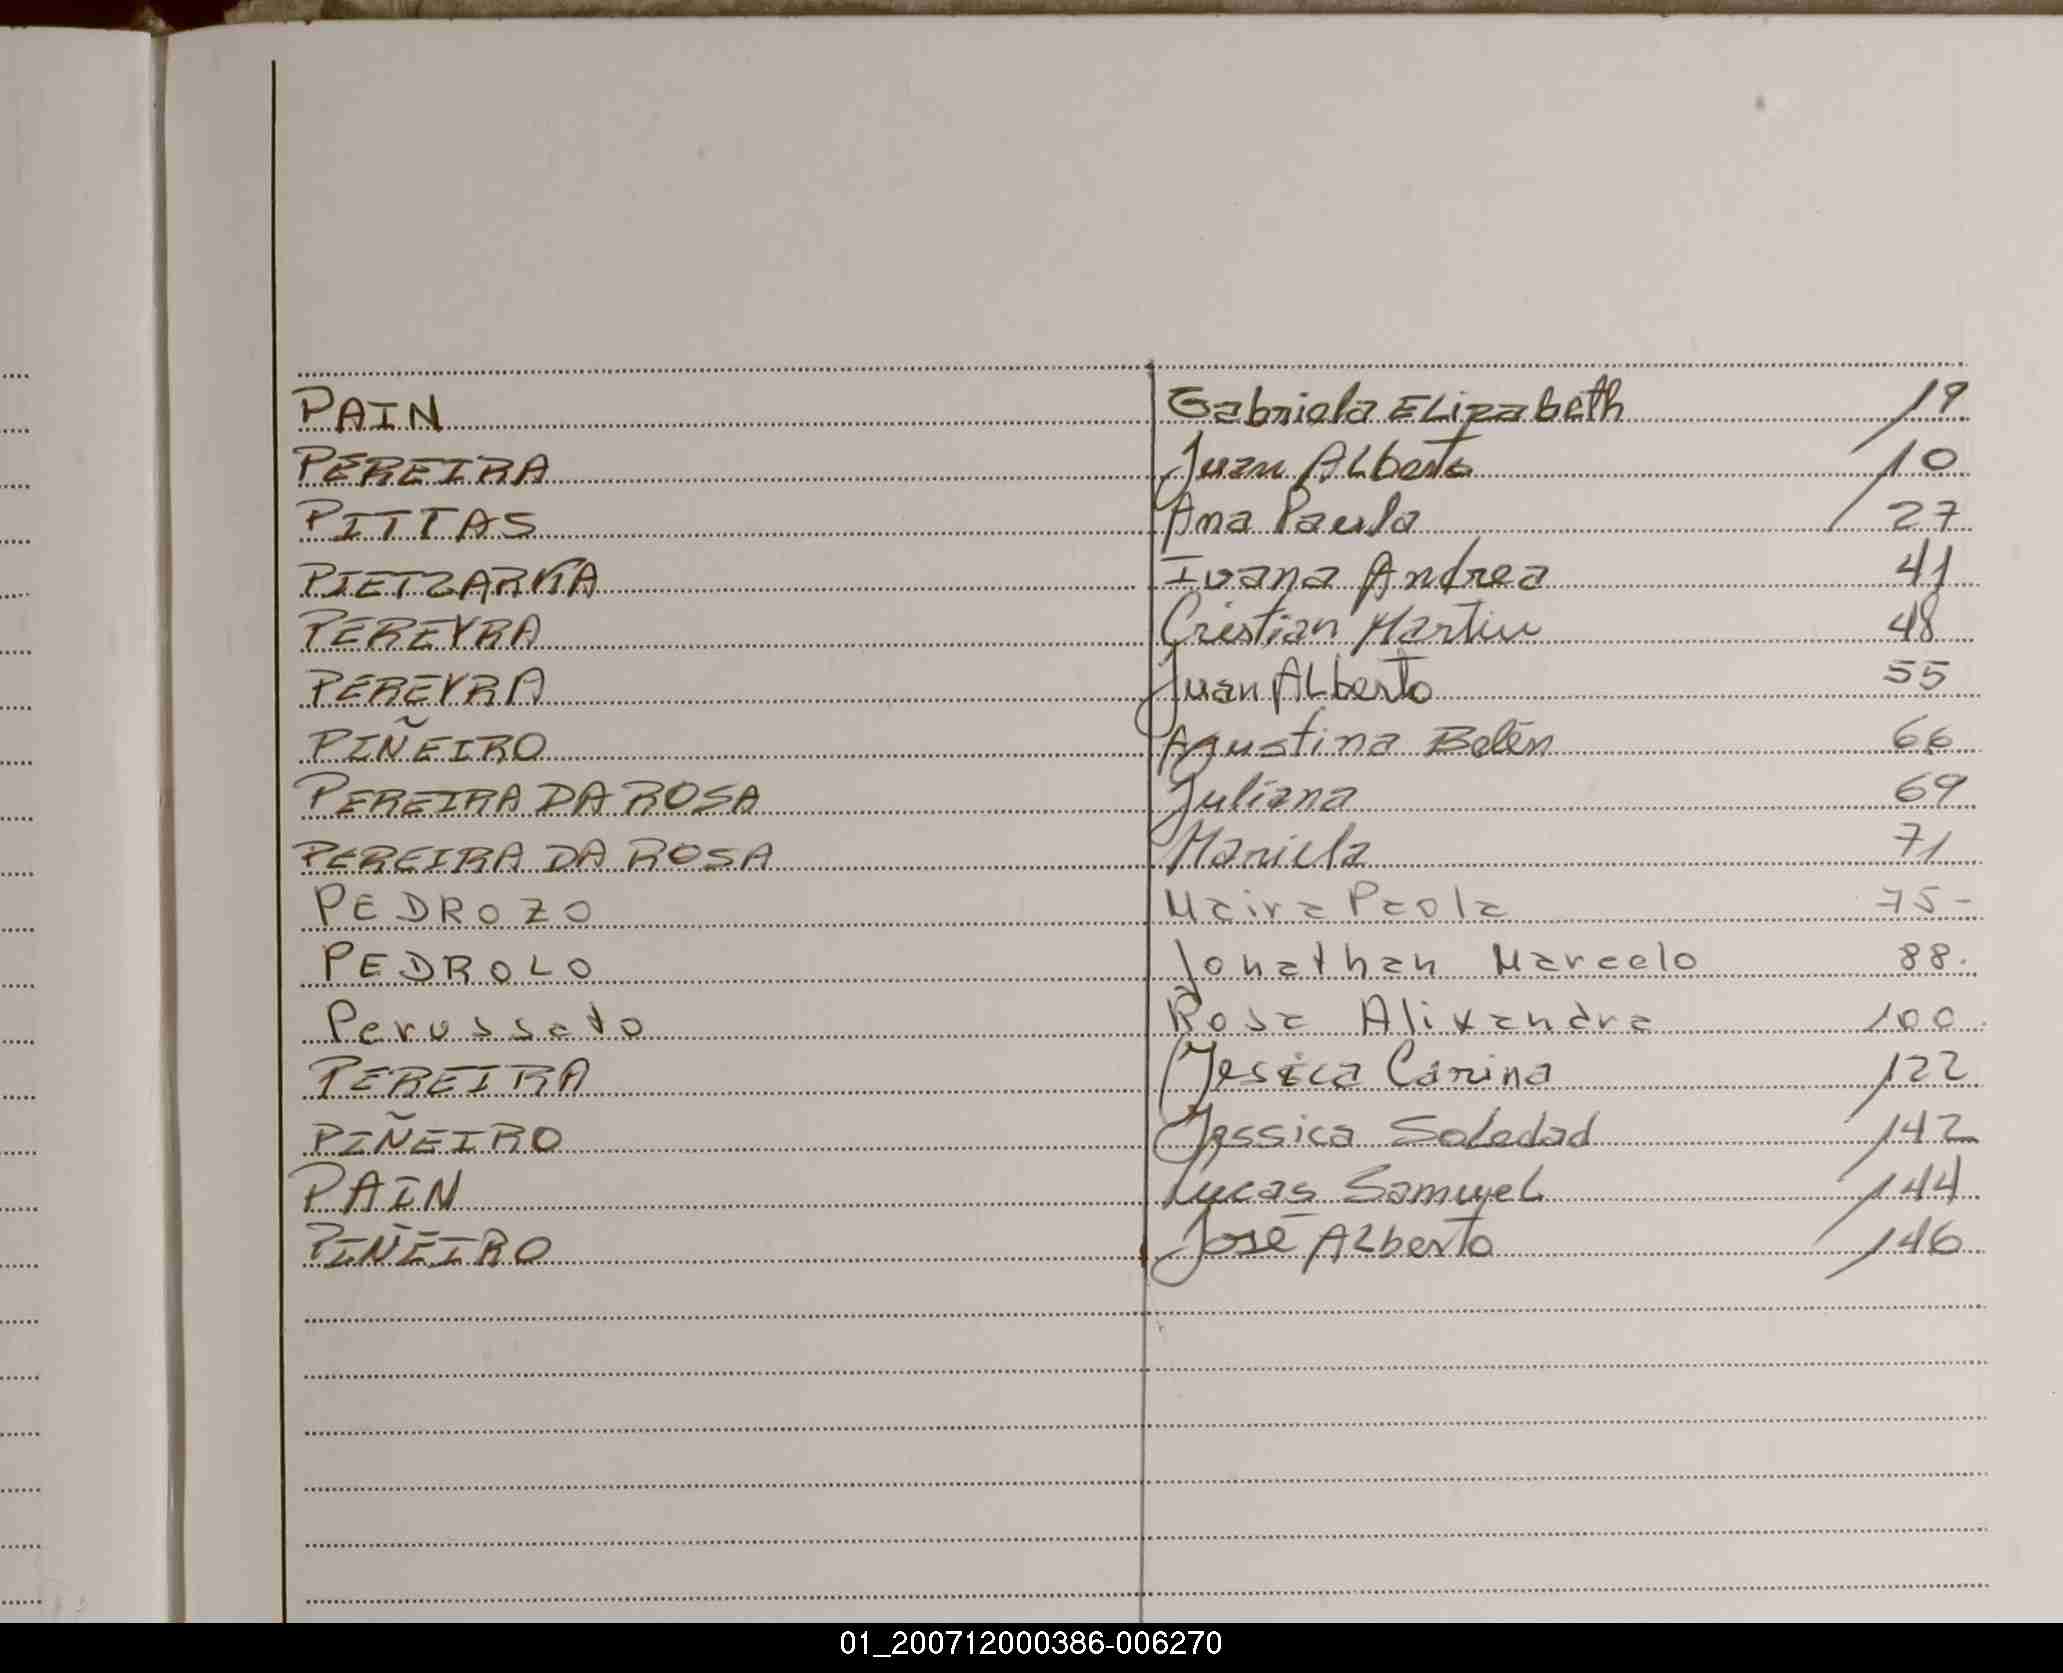 PAIN Gabriela ELizabeth 19
PEREIRA Juan ALberto 10
PITTAS Ana Paula 27
PIETZARKA Ivana Andrea 41
PEREYRA Cristian Martin 48
PEREYRA Juan ALberto 55
PIÑEIRO Agustina Belén 66
PEREIRA DA ROSA Juliana 69
PEREIRA DA ROSA Mariela 71
PEDROZO Maira Paola 75-
PEDROLO Jonathan Marcelo 88.
Perussato Rosa Alixandra 100
PEREIRA Jesica Carina 122
PIÑEIRO Jessica Soledad 142
PAIN Lucas Samuel 144
PIÑEIRO José ALberto 146
01_200712000386-006270